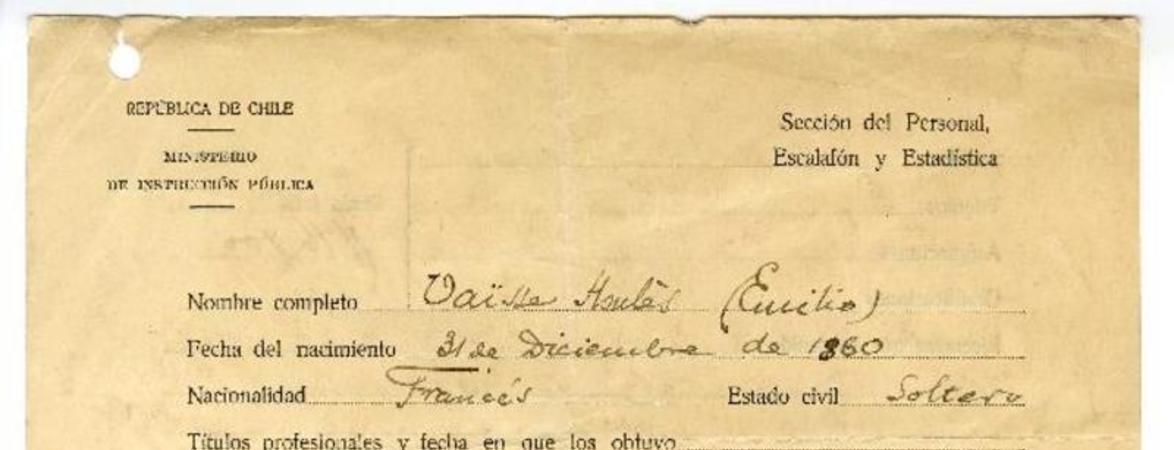 REPÚBLICA DE CHILE
MINISTERIO
DE INSTRUCCIÓN PÚBLICA
Sección del Personal,
Escalafón y Estadística
Nombre completo Vaïsse Houlès (Emilio)
Fecha del nacimiento 31 de Diciembre de 1860
Nacionalidad Francés Estado civil Soltero
Títulos profesionales y fecha en que los obtuvo